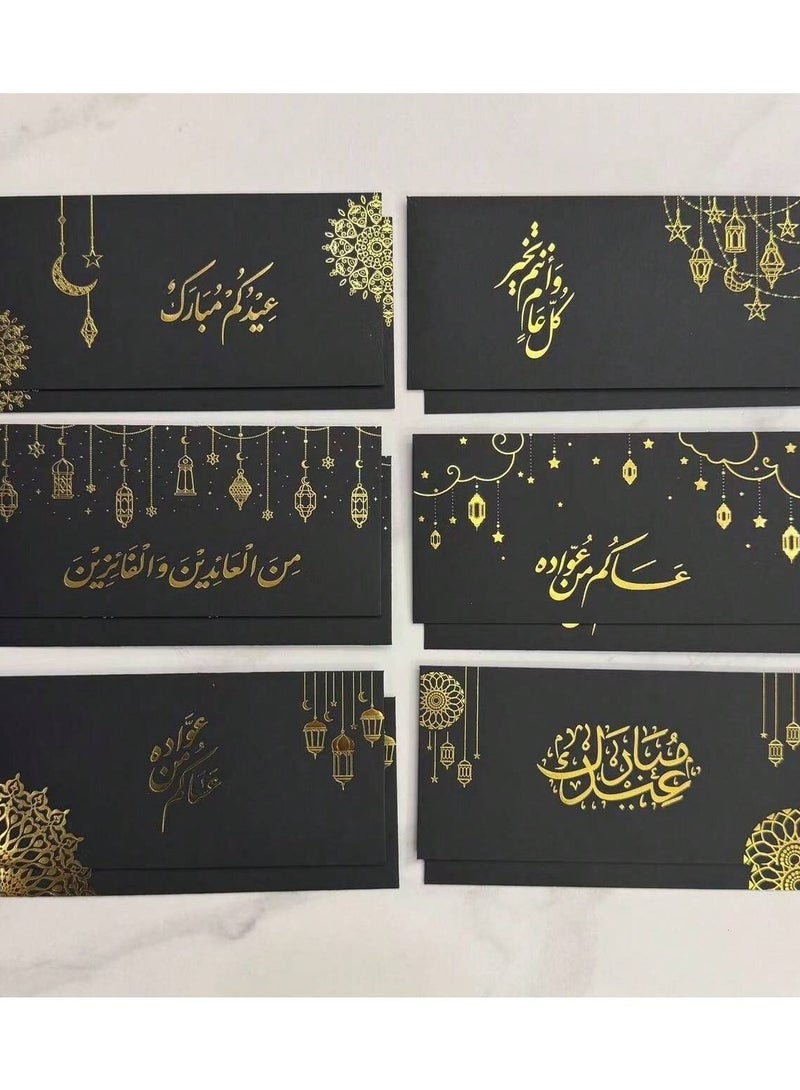 عِيْدُكُمْ مُبَارَكْ
كُلّ عَامٍ
وَأَنْتُم بِخَيْر
مِنَ الْعَائِدِيْنَ وَالْفَائِزِيْنَ
عَسَاكُم مِنْ عُوَّاده
عَسَاكُم
مِنْ
عُوَّاده
عِيْدُكُ مُبَارَك